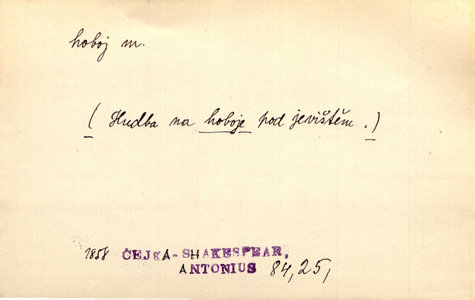 hoboj m.
( Hudba na hoboje pod jevištěm. )
1858 ČEJKA-SHAKESPEAR,
ANTONIUS 84, 25,